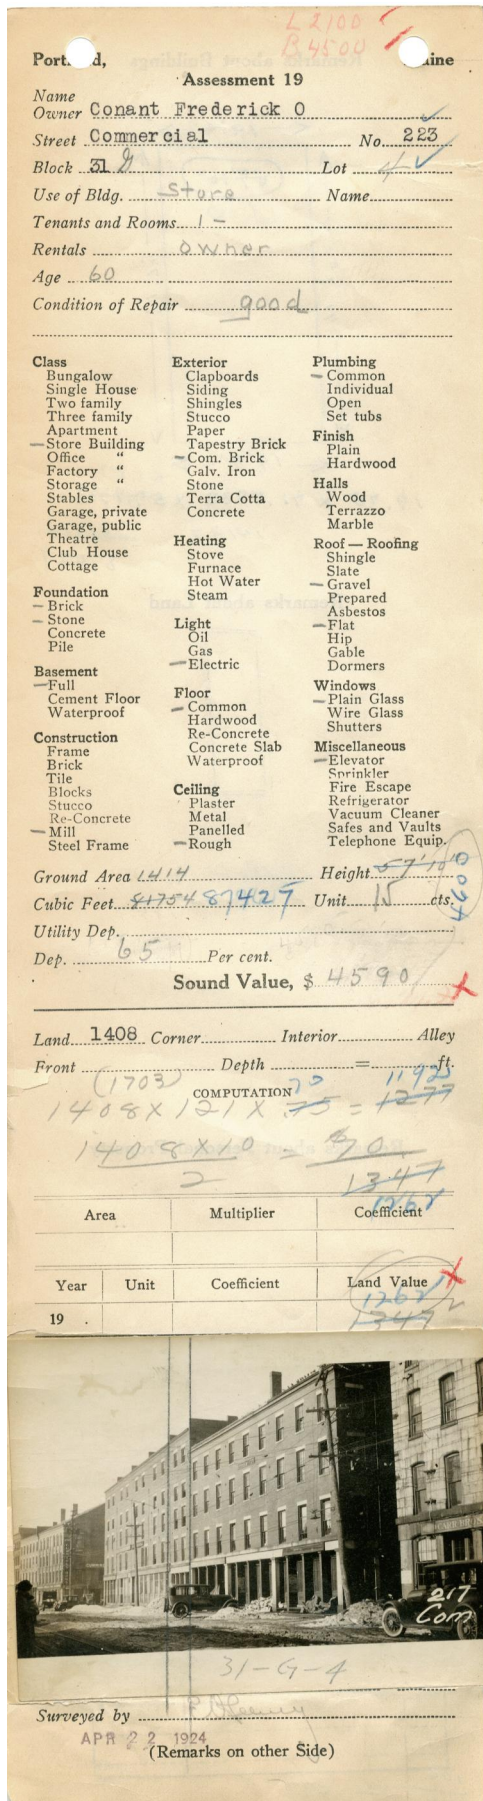 L 2100
B 4500
Portland, Maine
Assessment 19
Name
Owner Conant Frederick O
Street Commercial No. 223
Block 31 G Lot 4
Use of Bldg. Store Name
Tenants and Rooms 1 -
Rentals owner
Age 60
Condition of Repair good
Class
Bungalow
Single House
Two family
Three family
Apartment
— Store Building
Office "
Factory "
Storage "
Stables
Garage, private
Garage, public
Theatre
Club House
Cottage
Foundation
— Brick
— Stone
Concrete
Pile
Basement
— Full
Cement Floor
Waterproof
Construction
Frame
Brick
Tile
Blocks
Stucco
Re-Concrete
— Mill
Steel Frame
Exterior
Clapboards
Siding
Shingles
Stucco
Paper
Tapestry Brick
— Com. Brick
Galv. Iron
Stone
Terra Cotta
Concrete
Heating
Stove
Furnace
Hot Water
Steam
Light
Oil
Gas
— Electric
Floor
— Common
Hardwood
Re-Concrete
Concrete Slab
Waterproof
Ceiling
Plaster
Metal
Panelled
— Rough
Plumbing
— Common
Individual
Open
Set tubs
Finish
Plain
Hardwood
Halls
Wood
Terrazzo
Marble
Roof — Roofing
Shingle
Slate
— Gravel
Prepared
Asbestos
— Flat
Hip
Gable
Dormers
Windows
— Plain Glass
Wire Glass
Shutters
Miscellaneous
— Elevator
Sprinkler
Fire Escape
Refrigerator
Vacuum Cleaner
Safes and Vaults
Telephone Equip.
Ground Area 1414 Height 57'10"
Cubic Feet 81754 87427 Unit 15 cts.
Utility Dep.
Dep. 65 Per cent.
Sound Value, $ 4590
Land 1408 Corner Interior Alley
Front Depth = ft.
(1703) COMPUTATION 70 1192
1408 x 121 x .75 = 1277
1408 x 10 = 70
2 1347
1262
Area Multiplier Coefficient
Year Unit Coefficient Land Value
1262
19 . 1347
217
Com
31-G-4
Surveyed by
APR 22 1924
(Remarks on other Side)